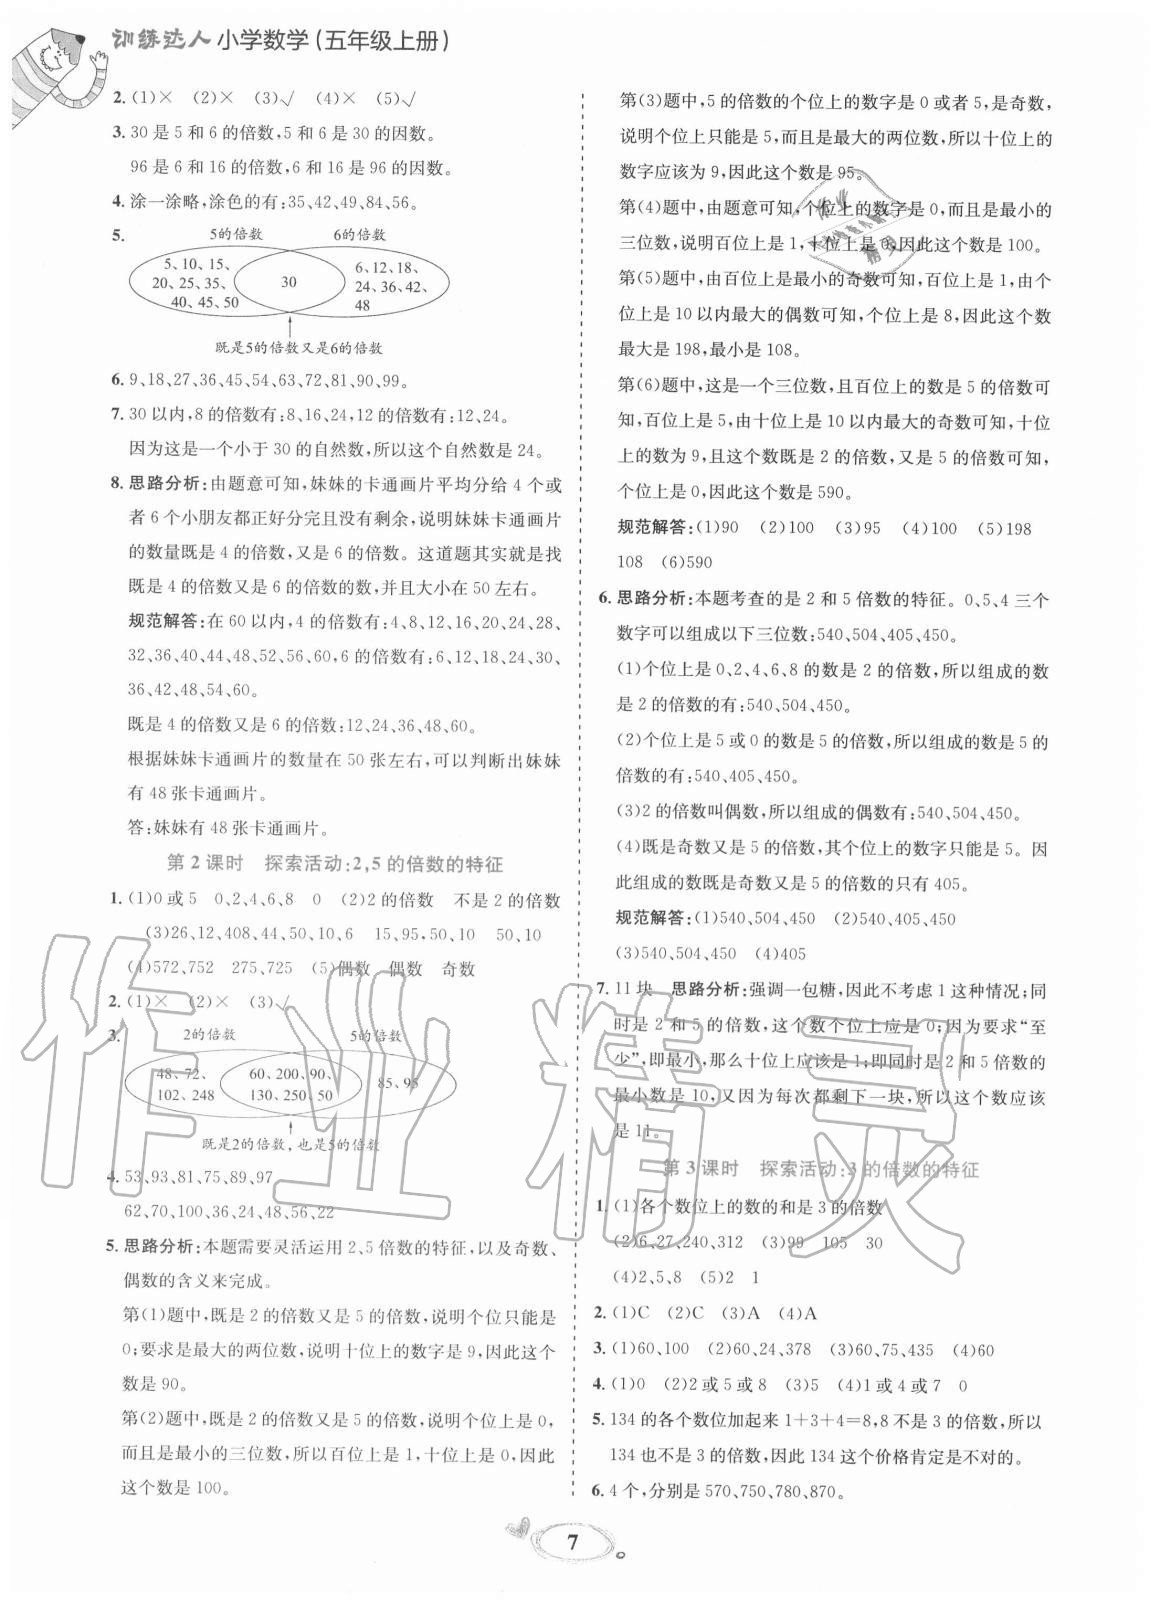 训练达人 小学数学(五年级上册)
2. (1)× (2)× (3)√ (4)× (5)√
3. 30 是 5 和 6 的倍数,5 和 6 是 30 的因数。
96 是 6 和 16 的倍数,6 和 16 是 96 的因数。
4. 涂一涂略,涂色的有:35、42、49、84、56。
5. 5的倍数 6的倍数
5、10、15、
20、25、35、
40、45、50
30
6、12、18、
24、36、42、
48
既是5的倍数又是6的倍数
6. 9、18、27、36、45、54、63、72、81、90、99。
7. 30 以内,8 的倍数有:8、16、24,12 的倍数有:12、24。
因为这是一个小于 30 的自然数,所以这个自然数是 24。
8. 思路分析:由题意可知,妹妹的卡通画片平均分给 4 个或
者 6 个小朋友都正好分完且没有剩余,说明妹妹卡通画片
的数量既是 4 的倍数,又是 6 的倍数。这道题其实就是找
既是 4 的倍数又是 6 的倍数的数,并且大小在 50 左右。
规范解答:在 60 以内,4 的倍数有:4、8、12、16、20、24、28、
32、36、40、44、48、52、56、60,6 的倍数有:6、12、18、24、30、
36、42、48、54、60。
既是 4 的倍数又是 6 的倍数:12、24、36、48、60。
根据妹妹卡通画片的数量在 50 张左右,可以判断出妹妹
有 48 张卡通画片。
答:妹妹有 48 张卡通画片。
第 2 课时 探索活动:2,5 的倍数的特征
1. (1)0 或 5 0、2、4、6、8 0 (2)2 的倍数 不是 2 的倍数
(3)26、12、408、44、50、10、6 15、95、50、10 50、10
(4)572、752 275、725 (5)偶数 偶数 奇数
2. (1)× (2)× (3)√
3. 2的倍数 5的倍数
48、72、
102、248
60、200、90、
130、250、50
85、95
既是2的倍数,也是5的倍数
4. 53、93、81、75、89、97
62、70、100、36、24、48、56、22
5. 思路分析:本题需要灵活运用 2、5 倍数的特征,以及奇数、
偶数的含义来完成。
第(1)题中,既是 2 的倍数又是 5 的倍数,说明个位只能是
0;要求是最大的两位数,说明十位上的数字是 9,因此这个
数是 90。
第(2)题中,既是 2 的倍数又是 5 的倍数,说明个位上是 0,
而且是最小的三位数,所以百位上是 1,十位上是 0,因此
这个数是 100。
第(3)题中,5 的倍数的个位上的数字是 0 或者 5,是奇数,
说明个位上只能是 5,而且是最大的两位数,所以十位上的
数字应该为 9,因此这个数是 95。
第(4)题中,由题意可知,个位上的数字是 0,而且是最小的
三位数,说明百位上是 1,十位上是 0,因此这个数是 100。
第(5)题中,由百位上是最小的奇数可知,百位上是 1,由个
位上是 10 以内最大的偶数可知,个位上是 8,因此这个数
最大是 198,最小是 108。
第(6)题中,这是一个三位数,且百位上的数是 5 的倍数可
知,百位上是 5,由十位上是 10 以内最大的奇数可知,十位
上的数为 9,且这个数既是 2 的倍数,又是 5 的倍数可知,
个位上是 0,因此这个数是 590。
规范解答:(1)90 (2)100 (3)95 (4)100 (5)198
108 (6)590
6. 思路分析:本题考查的是 2 和 5 倍数的特征。0、5、4 三个
数字可以组成以下三位数:540、504、405、450。
(1)个位上是 0、2、4、6、8 的数是 2 的倍数,所以组成的数
是 2 的倍数的有:540、504、450。
(2)个位上是 5 或 0 的数是 5 的倍数,所以组成的数是 5 的
倍数的有:540、405、450。
(3)2 的倍数叫偶数,所以组成的偶数有:540、504、450。
(4)既是奇数又是 5 的倍数,个位上的数字只能是 5。因
此组成的数既是奇数又是 5 的倍数的只有 405。
规范解答:(1)540、504、450 (2)540、405、450
(3)540、504、450 (4)405
7. 11 块 思路分析:强调一包糖,因此不考虑 1 这种情况;同
时是 2 和 5 的倍数,这个数个位上应是 0;因为要求“至
少”,即最小,那么十位上应该是 1;即同时是 2 和 5 倍数的
最小数是 10,又因为每次都剩下一块,所以这个数应该
是 11。
第 3 课时 探索活动:3 的倍数的特征
1. (1)各个数位上的数的和是 3 的倍数
(2)6、27、240、312 (3)99 105 30
(4)2、5、8 (5)2 1
2. (1)C (2)C (3)A (4)A
3. (1)60、100 (2)60、24、378 (3)60、75、435 (4)60
4. (1)0 (2)2 或 5 或 8 (3)5 (4)1 或 4 或 7 0
5. 134 的各个数位加起来 1+3+4=8,8 不是 3 的倍数,所以
134 也不是 3 的倍数,因此 134 这个价格肯定是不对的。
6. 4 个,分别是 570、750、780、870。
作业精灵
7